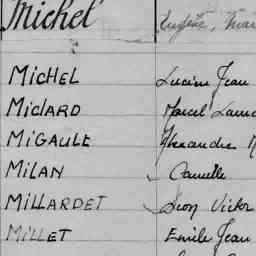 Michel Eugène,
MICHEL Lucien Jean
MICLARD Marcel
MIGAULT Alexandre
MILAN Camille
MILLARDET Léon Victor
MILLET Emile Jean